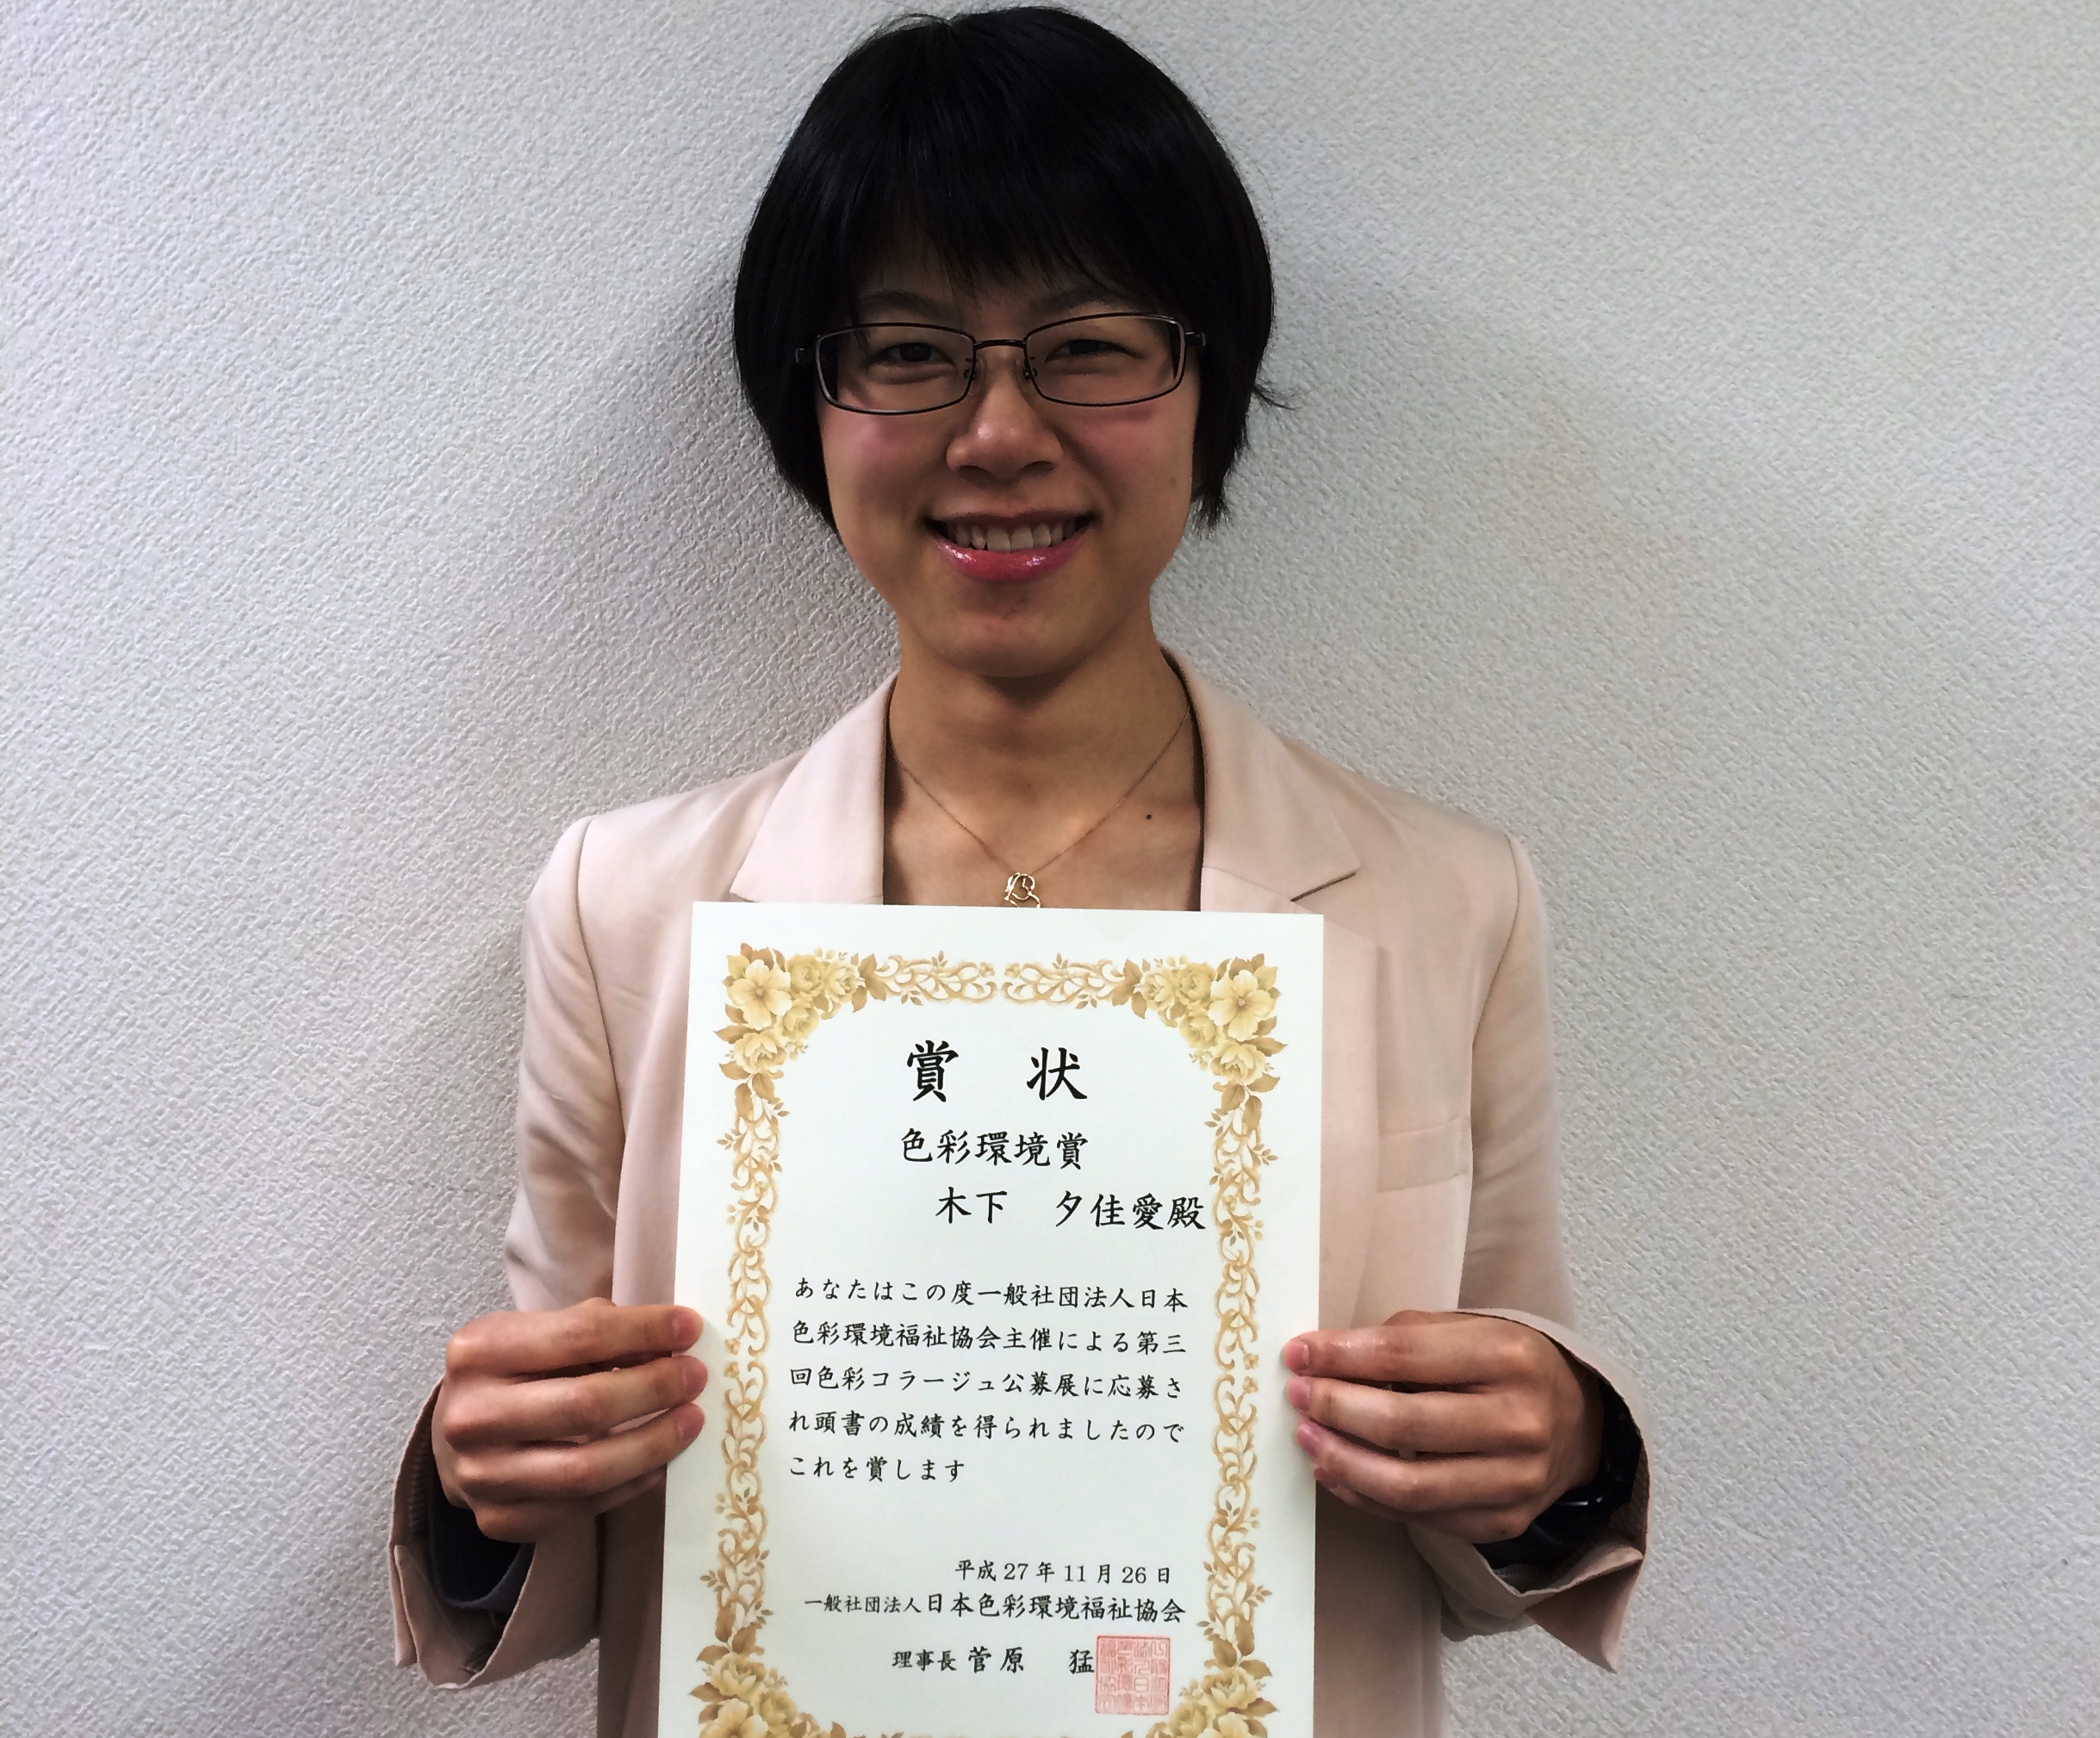 賞 状
色彩環境賞
木下 夕佳愛殿
あなたはこの度一般社団法人日本
色彩環境福祉協会主催による第三
回色彩コラージュ公募展に応募さ
れ頭書の成績を得られましたので
これを賞します
平成27年11月26日
一般社団法人日本色彩環境福祉協会
理事長 菅原 猛